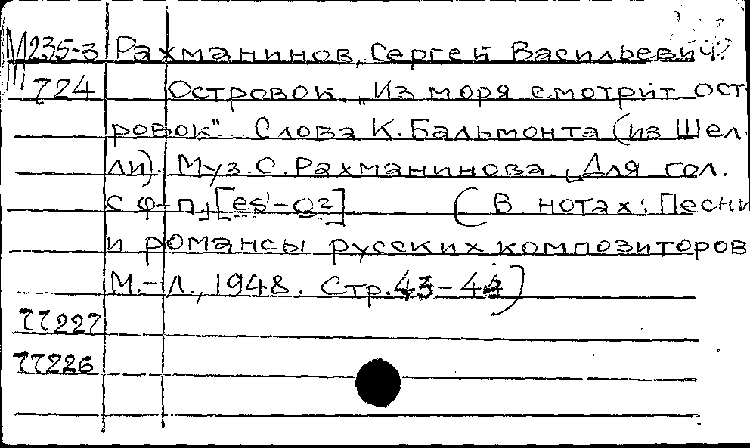 М235-3 Рахманинов, Сергей Васильевич
724 Островок. „Из моря смотрит ост
ровок". Слова К. Бальмонта (из Шел-
ли). Муз. С. Рахманинова. Для гол.
с ф-п. [es¹-g²] (В нотах: Песни
и романсы русских композиторов
М.-Л., 1948. Стр. 43-44)
77227
77226